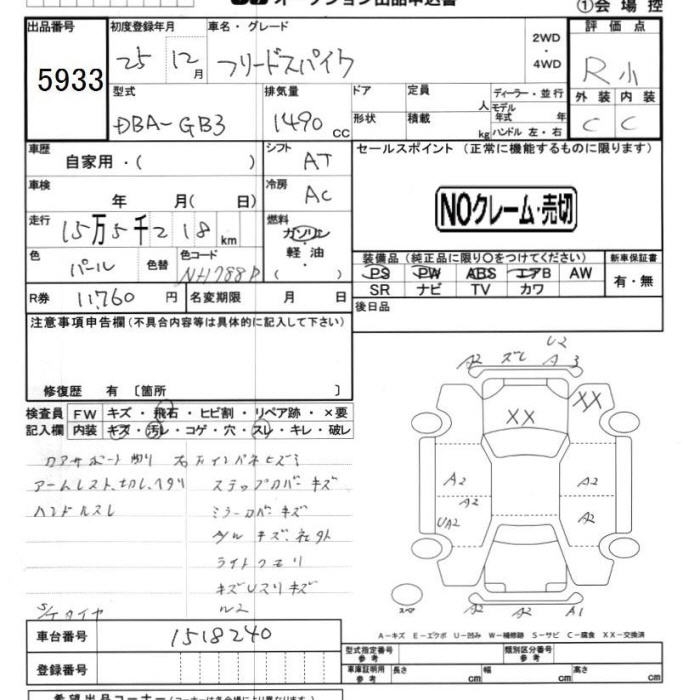 オークション出品申込書
①会場控
出品番号 初度登録年月 車名・グレード 評価点
5933 25 12月 フリードスパイク 2WD ・ 4WD R小
型式 排気量 ドア 定員 ディーラー・並行 外装 内装
DBA-GB3 1490 cc 形状 積載 人 kg モデル年式 年 ハンドル 左・右 C C
車歴 自家用・( ) シフト AT セールスポイント (正常に機能するものに限ります)
車検 年 月( 日) 冷房 AC NOクレーム・売切
走行 15万5千218km 燃料 ガソリン・軽油・( )
色 パール 色替 色コード NH788P
装備品 (純正品に限り○をつけてください) 新車保証書
PS PW ABS エアB AW 有・無
SR ナビ TV カワ
R券 11,760円 名変期限 月 日 後日品
注意事項申告欄(不具合内容等は具体的に記入して下さい)
修復歴 有 〔箇所 〕
検査員 FW キズ・飛石・ヒビ割・リペア跡・×要
記入欄 内装 キズ・汚レ・コゲ・穴・スレ・キレ・破レ
コアサポート切り 右インパネヒズミ
アームレスト、切レ、ヘタリ ステップカバーキズ
ハンドルスレ ミラーカバーキズ
キズ、社外
ライトクモリ
キズUスリキズ
ル2
S/Tタイヤ
U2
A2 ズレ A3
XX XX
A2 A2
A2
UA2 A2
スペア A2 A2 A1
A-キズ E-エクボ U-凹み W-補修跡 S-サビ C-腐食 XX-交換済
車台番号 1518240
型式指定番号 参考 類別区分番号 参考
登録番号 車庫証明用 参考 長さ cm 幅 cm 高さ cm
希望出品コーナー(コーナーは各会場により異なります)